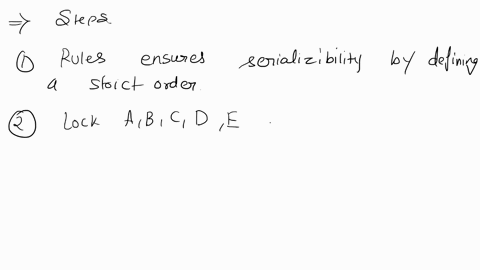 ⇒ Steps
① Rules ensures serializibility by defining
a strict order.
② Lock A, B, C, D, E